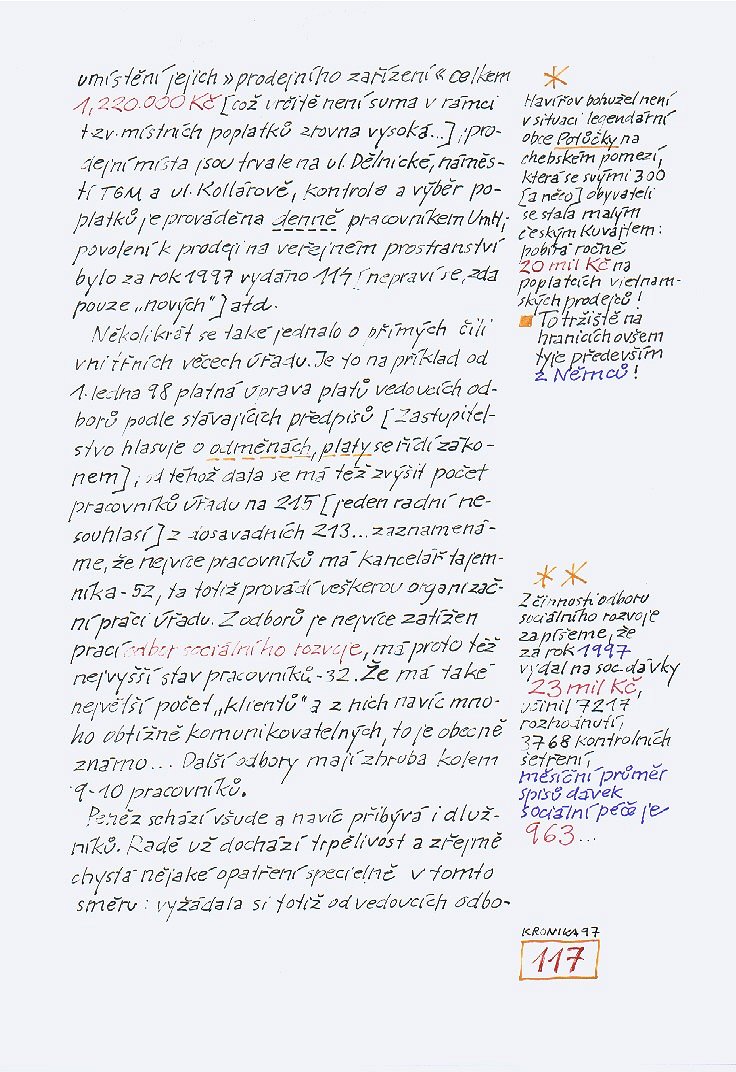 umístění jejich » prodejního zařízení « celkem
1,220.000 Kč [což určitě není suma v rámci
t.zv. místních poplatků zrovna vysoká...] ; pro-
dejní místa jsou trvale na ul. Dělnické, náměs-
tí TGM a ul. Kollárově, kontrola a výběr po-
platků je prováděna denně pracovníkem úřadu;
povolení k prodeji na veřejném prostranství
bylo za rok 1997 vydáno 114 [nepraví se, zda
pouze „nových"] atd.
Několikrát se také jednalo o přímých čili
vnitřních věcech úřadu. Je to na příklad od
1. ledna 98 platná úprava platů vedoucích od-
borů podle stávajících předpisů [Zastupitel-
stvo hlasuje o odměnách, platy se řídí záko-
nem] ; od téhož data se má též zvýšit počet
pracovníků úřadu na 215 [jeden radní ne-
souhlasí] z dosavadních 213... zaznamená-
me, že nejvíce pracovníků má kancelář tajem-
níka - 52, ta totiž provádí veškerou organizač-
ní práci úřadu. Z odborů je nejvíce zatížen
prací odbor sociálního rozvoje, má proto též
nejvyšší stav pracovníků - 32. Že má také
největší počet „klientů" a z nich navíc mno-
ho obtížně komunikovatelných, to je obecně
známo... Další odbory mají zhruba kolem
9-10 pracovníků.
Peněz schází všude a navíc přibývá i dluž-
níků. Radě už dochází trpělivost a zřejmě
chystá nějaké opatření specielně v tomto
směru : vyžádala si totiž od vedoucích odbo-
*
Havířov bohužel není
v situaci legendární
obce Potůčky na
chebském pomezí,
která se svými 300
[a něco] obyvateli
se stala malým
českým Kuvajtem:
pobírá ročně
20 mil Kč na
poplatcích vietnam-
ských prodejců!
To tržiště na
hranicích ovšem
tyje především
z Němců!
* *
Z činnosti odboru
sociálního rozvoje
zapíšeme, že
za rok 1997
vydal na soc. dávky
23 mil Kč,
učinil 7217
rozhodnutí,
3768 kontrolních
šetření,
měsíční průměr
spisů dávek
sociální péče je
963...
KRONIKA 97
117